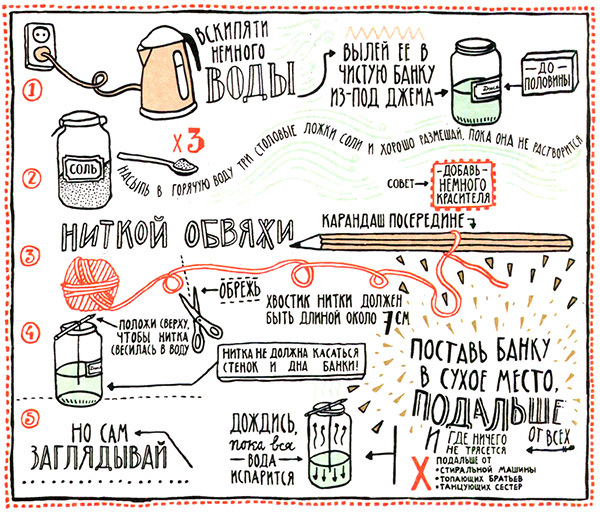 1
ВСКИПЯТИ
НЕМНОГО
ВОДЫ
ВЫЛЕЙ ЕЕ В
ЧИСТУЮ БАНКУ
ИЗ-ПОД ДЖЕМА
-ДО-
ПОЛОВИНЫ
2
СОЛЬ
Х3
НАСЫПЬ В ГОРЯЧУЮ ВОДУ ТРИ СТОЛОВЫЕ ЛОЖКИ СОЛИ И ХОРОШО РАЗМЕШАЙ, ПОКА ОНА НЕ РАСТВОРИТСЯ
СОВЕТ
-ДОБАВЬ-
НЕМНОГО
КРАСИТЕЛЯ
3
НИТКОЙ ОБВЯЖИ
КАРАНДАШ ПОСЕРЕДИНЕ
ОБРЕЖЬ
ХВОСТИК НИТКИ ДОЛЖЕН
БЫТЬ ДЛИНОЙ ОКОЛО 7 СМ
4
ПОЛОЖИ СВЕРХУ,
ЧТОБЫ НИТКА
СВЕСИЛАСЬ В ВОДУ
НИТКА НЕ ДОЛЖНА КАСАТЬСЯ
СТЕНОК И ДНА БАНКИ!
ПОСТАВЬ БАНКУ
В СУХОЕ МЕСТО,
ПОДАЛЬШЕ
ОТ ВСЕХ
И ГДЕ НИЧЕГО
НЕ ТРЯСЕТСЯ
Х ПОДАЛЬШЕ ОТ
•СТИРАЛЬНОЙ МАШИНЫ
•ТОПАЮЩИХ БРАТЬЕВ
•ТАНЦУЮЩИХ СЕСТЕР
5
ДОЖДИСЬ,
пока вся
ВОДА
ИСПАРИТСЯ
НО САМ
ЗАГЛЯДЫВАЙ